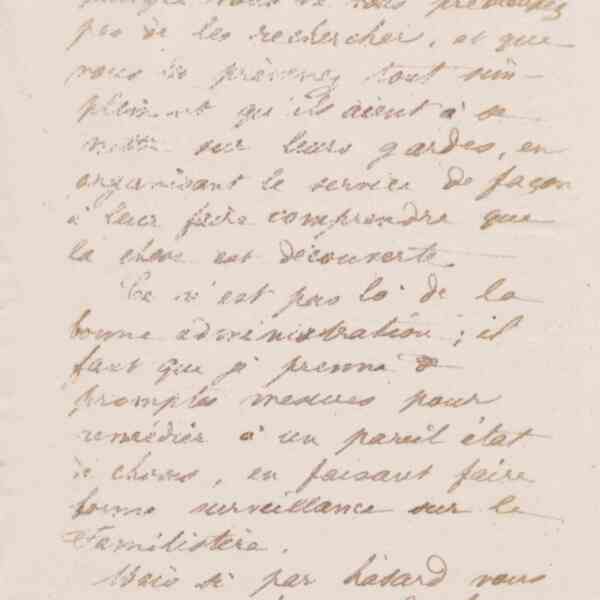 vous ne vous préoccupez
pas de les rechercher, et que
vous les prévenez tout sim-
plement qu'ils aient à se
mettre sur leurs gardes, en
organisant le service de façon
à leur faire comprendre que
la chose est découverte.
Ce n'est pas là de la
bonne administration ; il
faut que je prenne de
promptes mesures pour
remédier à un pareil état
de choses, en faisant faire
bonne surveillance sur le
Familistère.
Mais si par hasard vous